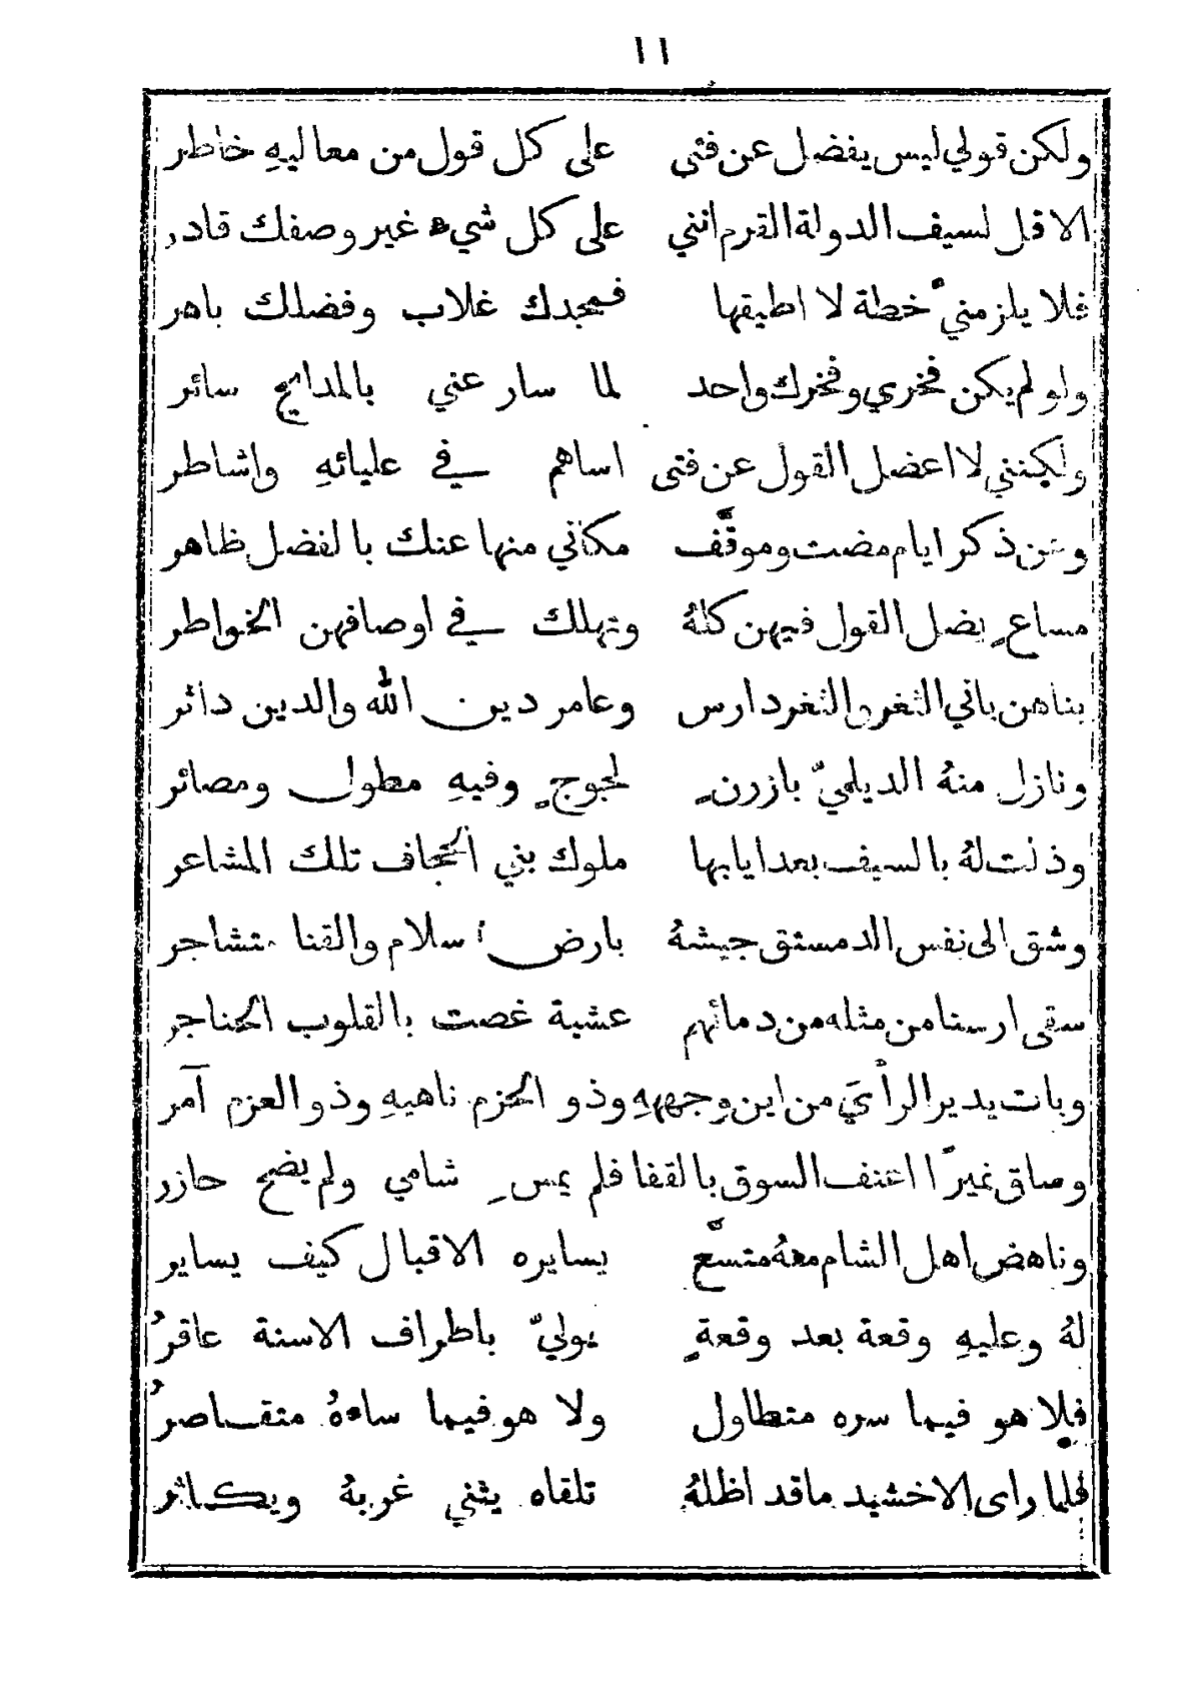 ١١
ولكن قولي ليس يفضل عن فتى على كل قول من معاليهِ خاطر
الا قل لسيف الدولة القرم انني على كل شيء غير وصفك قادر
فلا يلزمنيّ خطة لا اطيقها فمجدك غلاب وفضلك باهر
ولو لم يكن فخري وفخرك واحد لما سار عني بالمدايح سائر
ولكنني لا اعضل القول عن فتى اساهم في عليائهِ واشاطر
وعن ذكر ايام مضت وموقّف مكاني منها عنك بالفضل ظاهر
مساعٍ يضل القول فيهن كلهُ وتهلك في اوصافهن الخواطر
بناهن باني الثغر والثغر دارس وعامر دين الله والدين داثر
ونازل منهُ الديلميّ بازرنٍ لجوجٍ وفيهِ مطول ومصائر
وذلت لهُ بالسيف بعد ايابها ملوك بني الجحاف تلك المشاعر
وشق الى نفس الدمستق جيشهُ بارض اسلام والقنا متشاجر
سقى ارسناس من مثله من دمائهم عشية غصت بالقلوب الحناجر
وبات يدير الرأيَ من اين وجههِ وذو الحزم ناهيهِ وذو العزم آمر
وساق نميرًا اعنف السوق بالقفا فلم يمسِ شامي ولم يضح حازر
وناهض اهل الشام معهُ متسّع يسايره الاقبال كيف يساير
لهُ وعليهِ وقعة بعد وقعةٍ يوليّ باطراف الاسنة عاقرُ
فلا هو فيما سره متطاول ولا هو فيما ساءهُ متقاصرُ
فلما راى الاخشيد ما قد اظلهُ تلقاه يثني غربهُ ويكاثر